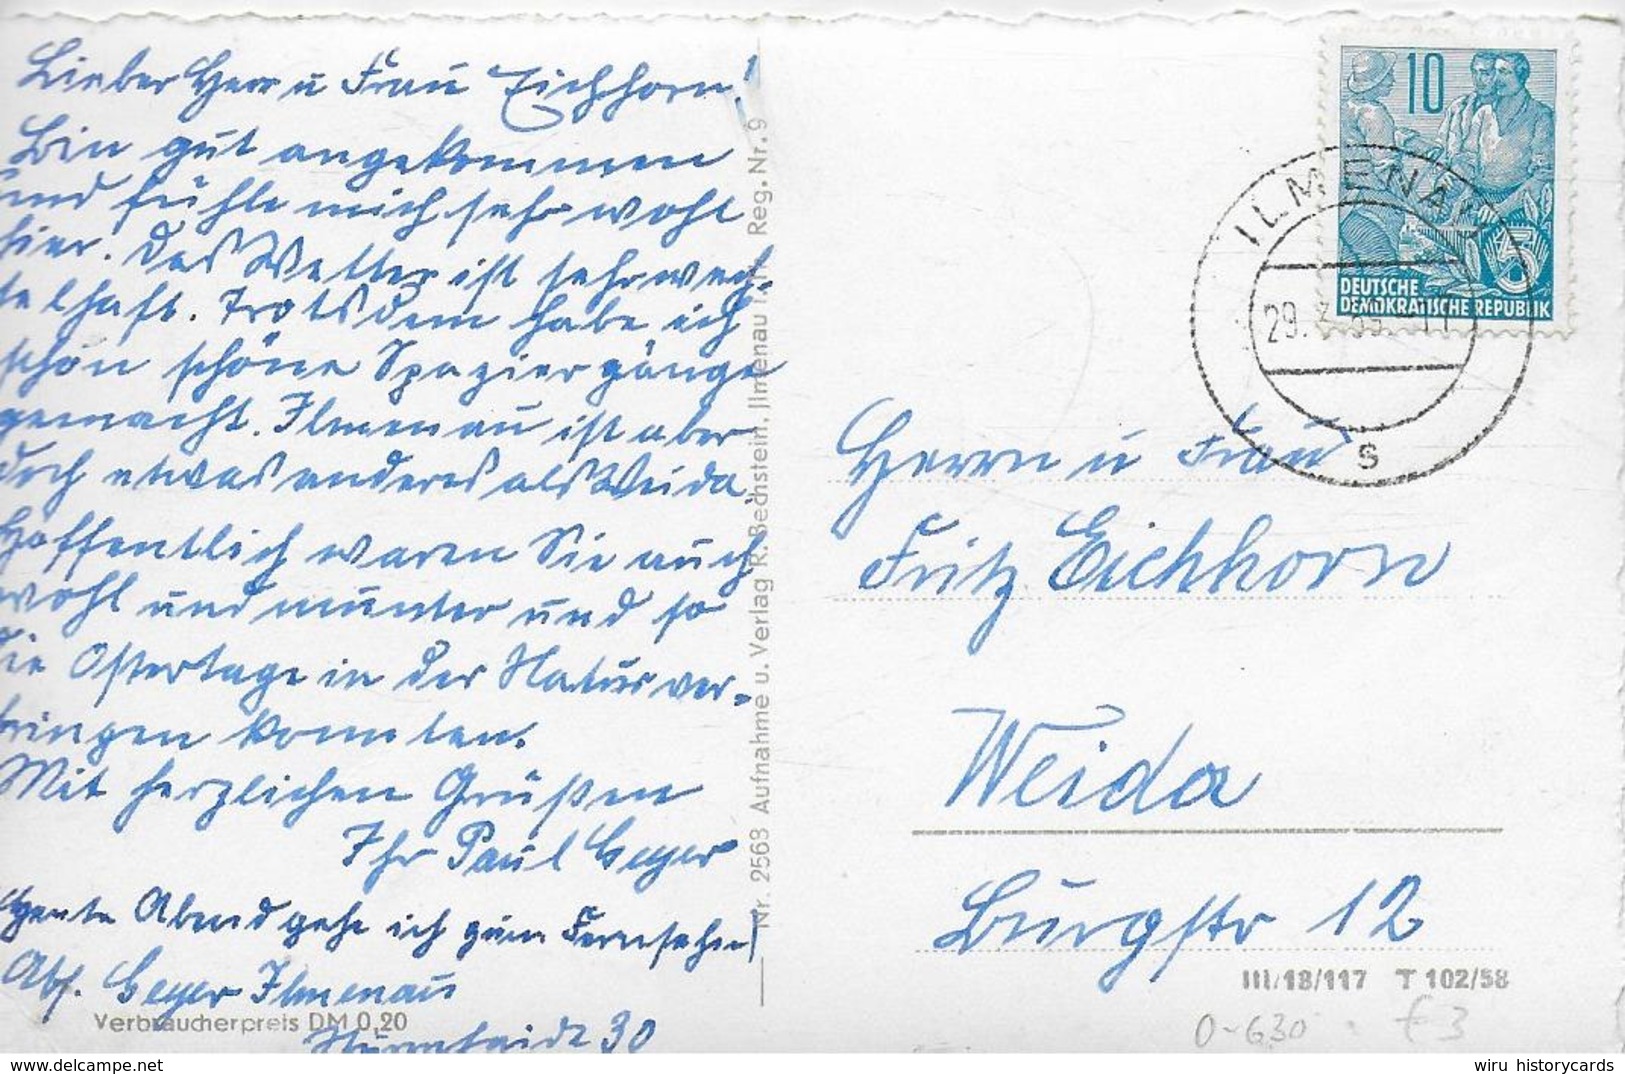 Lieber Herr u Frau Eichhorn!
Bin gut angekommen
und fühle mich sehr wohl
hier. Das Wetter ist sehr wech-
selhaft. Trotsdem habe ich
schön schöne Spaziergänge
gemacht. Ilmenau ist aber
doch etwas anderes als Weida.
Hoffentlich waren Sie auch
wohl und munter und so
die Ostertage in der Natur ver-
bringen konnten.
Mit herzlichen Grüßen
Ihr Paul Geyer
Heute Abend gehe ich zum Fernsehn!
Abs. Geyer Ilmenau
30
Verbraucherpreis DM 0,20
Nr. 2568 Aufnahme u. Verlag R. Bechstein, Ilmenau Reg. Nr. 9
10
5
DEUTSCHE
DEMOKRATISCHE REPUBLIK
ILMENAU
29.
s
Herrn u Frau
Fritz Eichhorn
Weida
Burgstr 12
III/18/117 T 102/58
0-630 € 3
wiru historycards